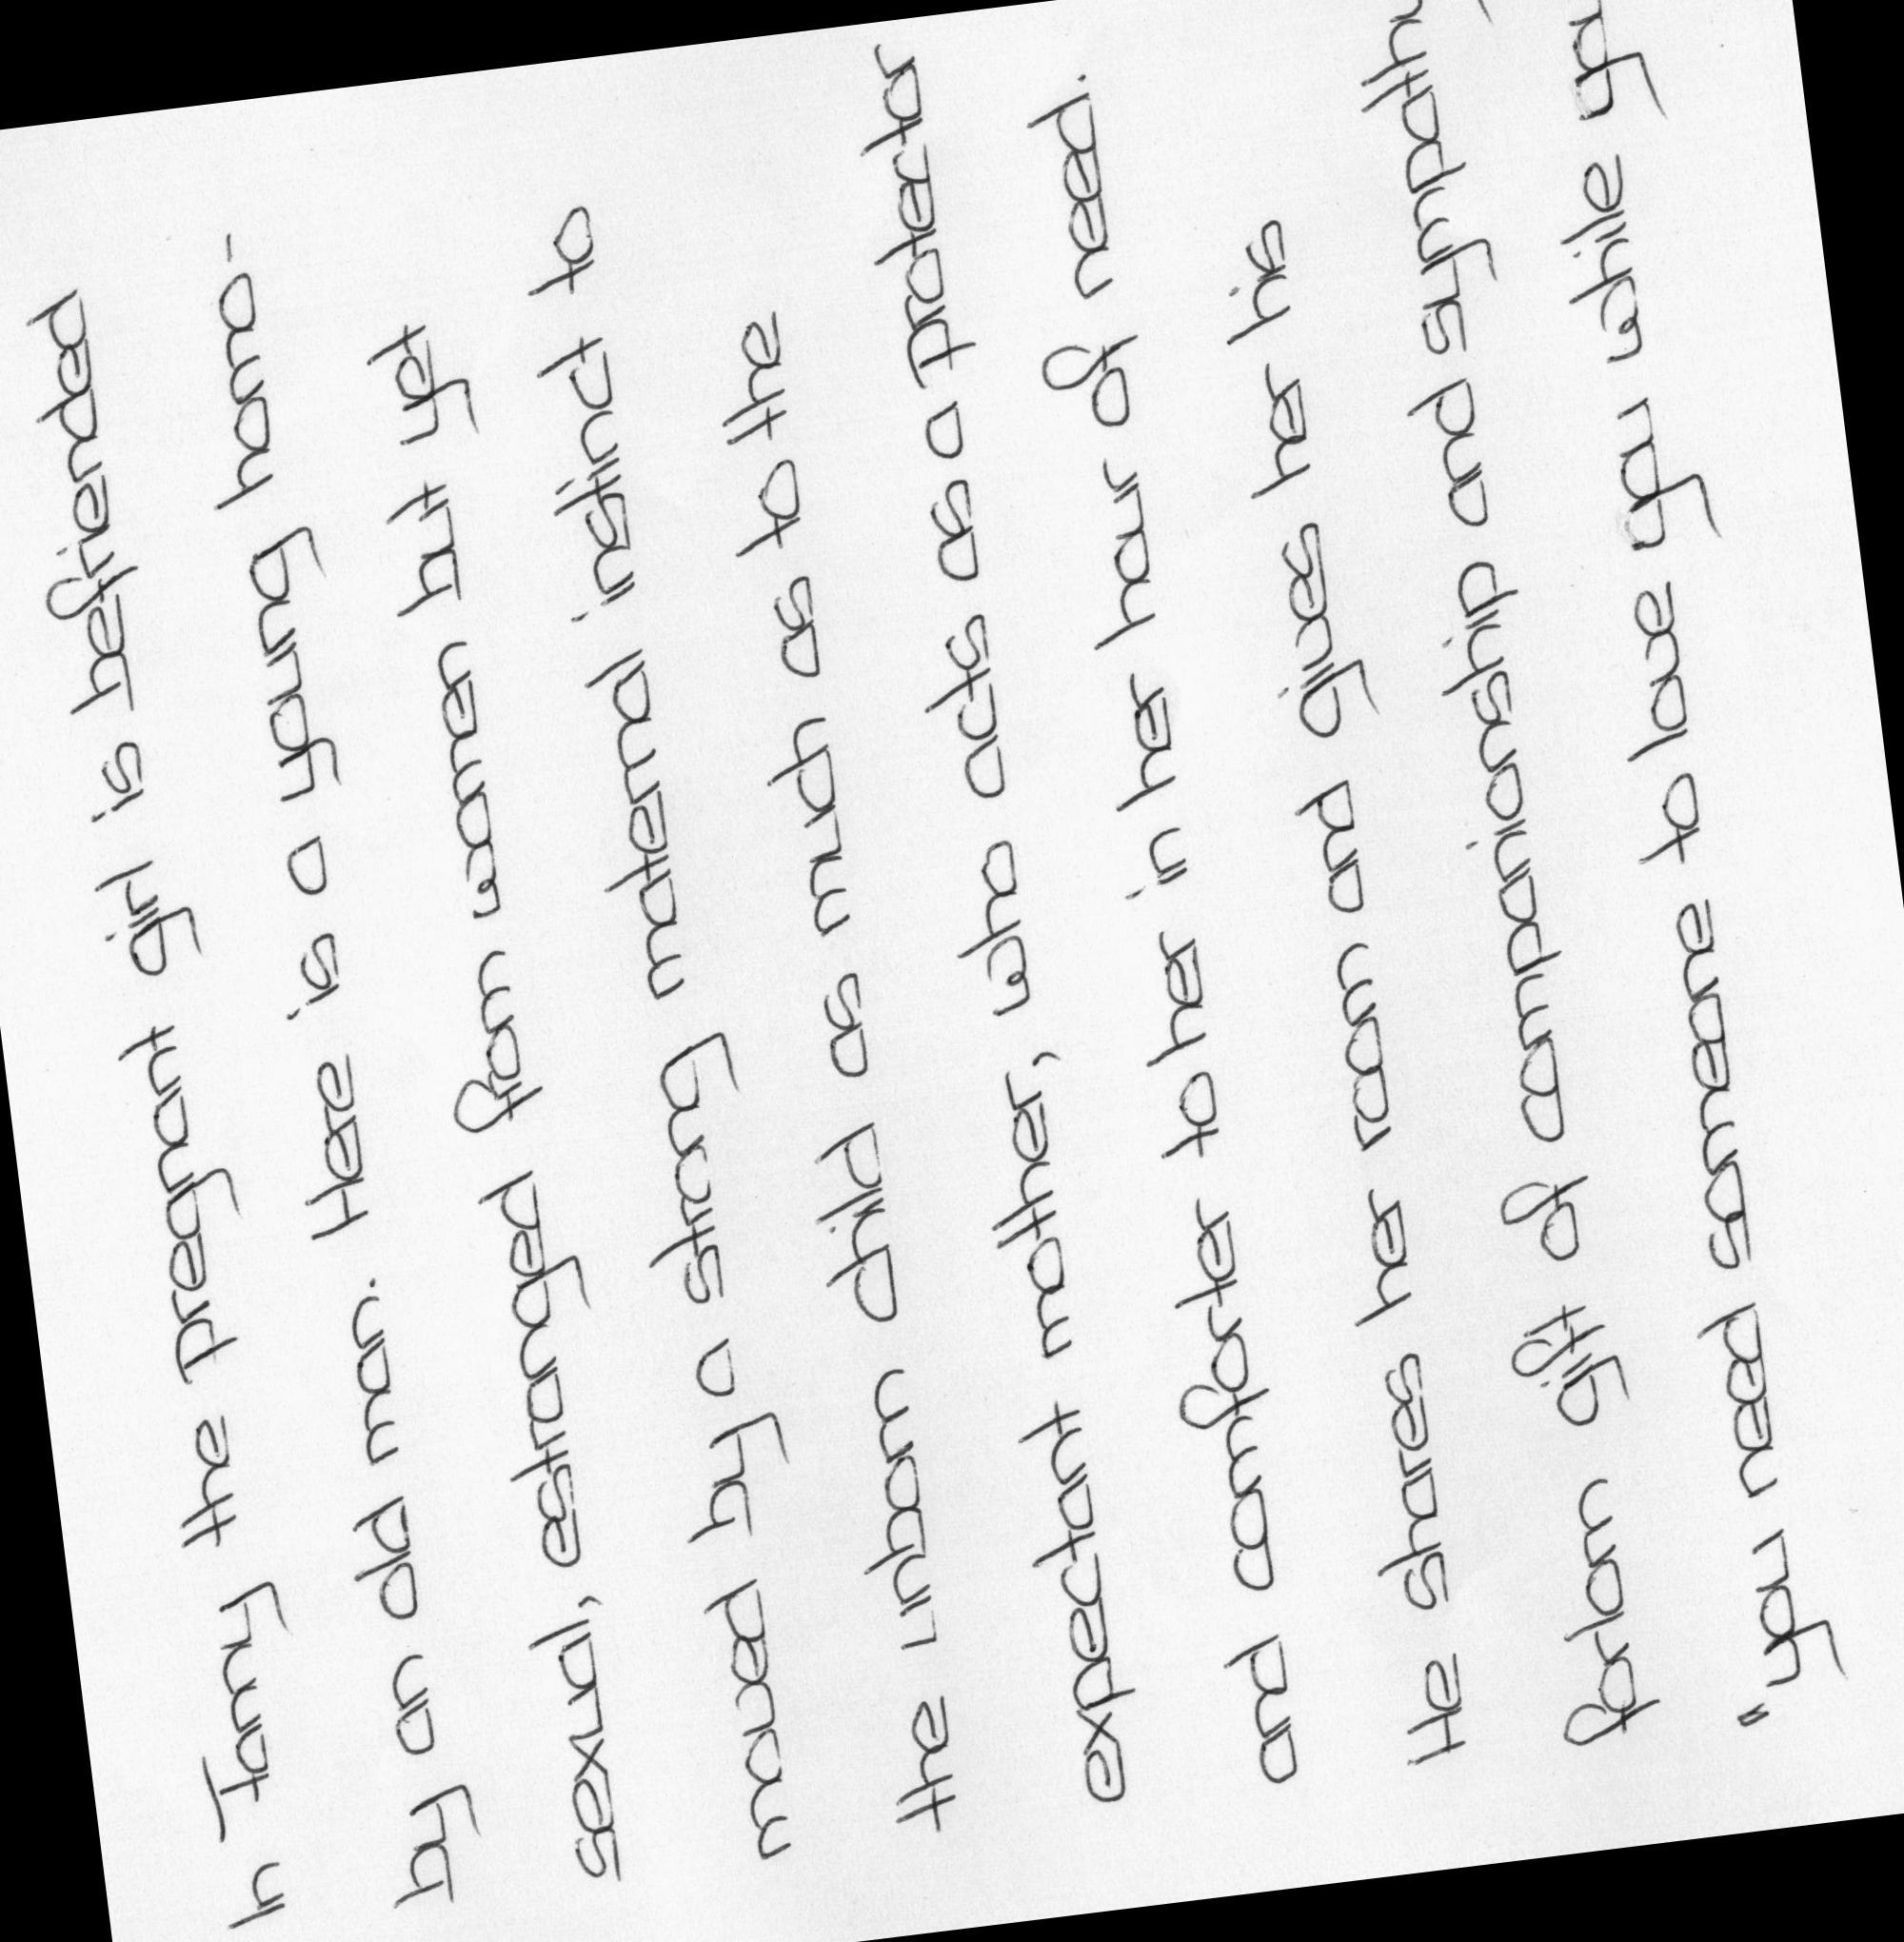 In Tommy the pregnant girl is befriended
by an old man. Hee is a young homo-
sexual, estranged from women but yet
moved by a strong maternal instinct to
the unborn child as much as to the
expectant mother, who acts as a protector
and comforter to her in her hour of need.
He shares her room and gives her his
gift of companionship and sympathy
"you need someone to love you while you